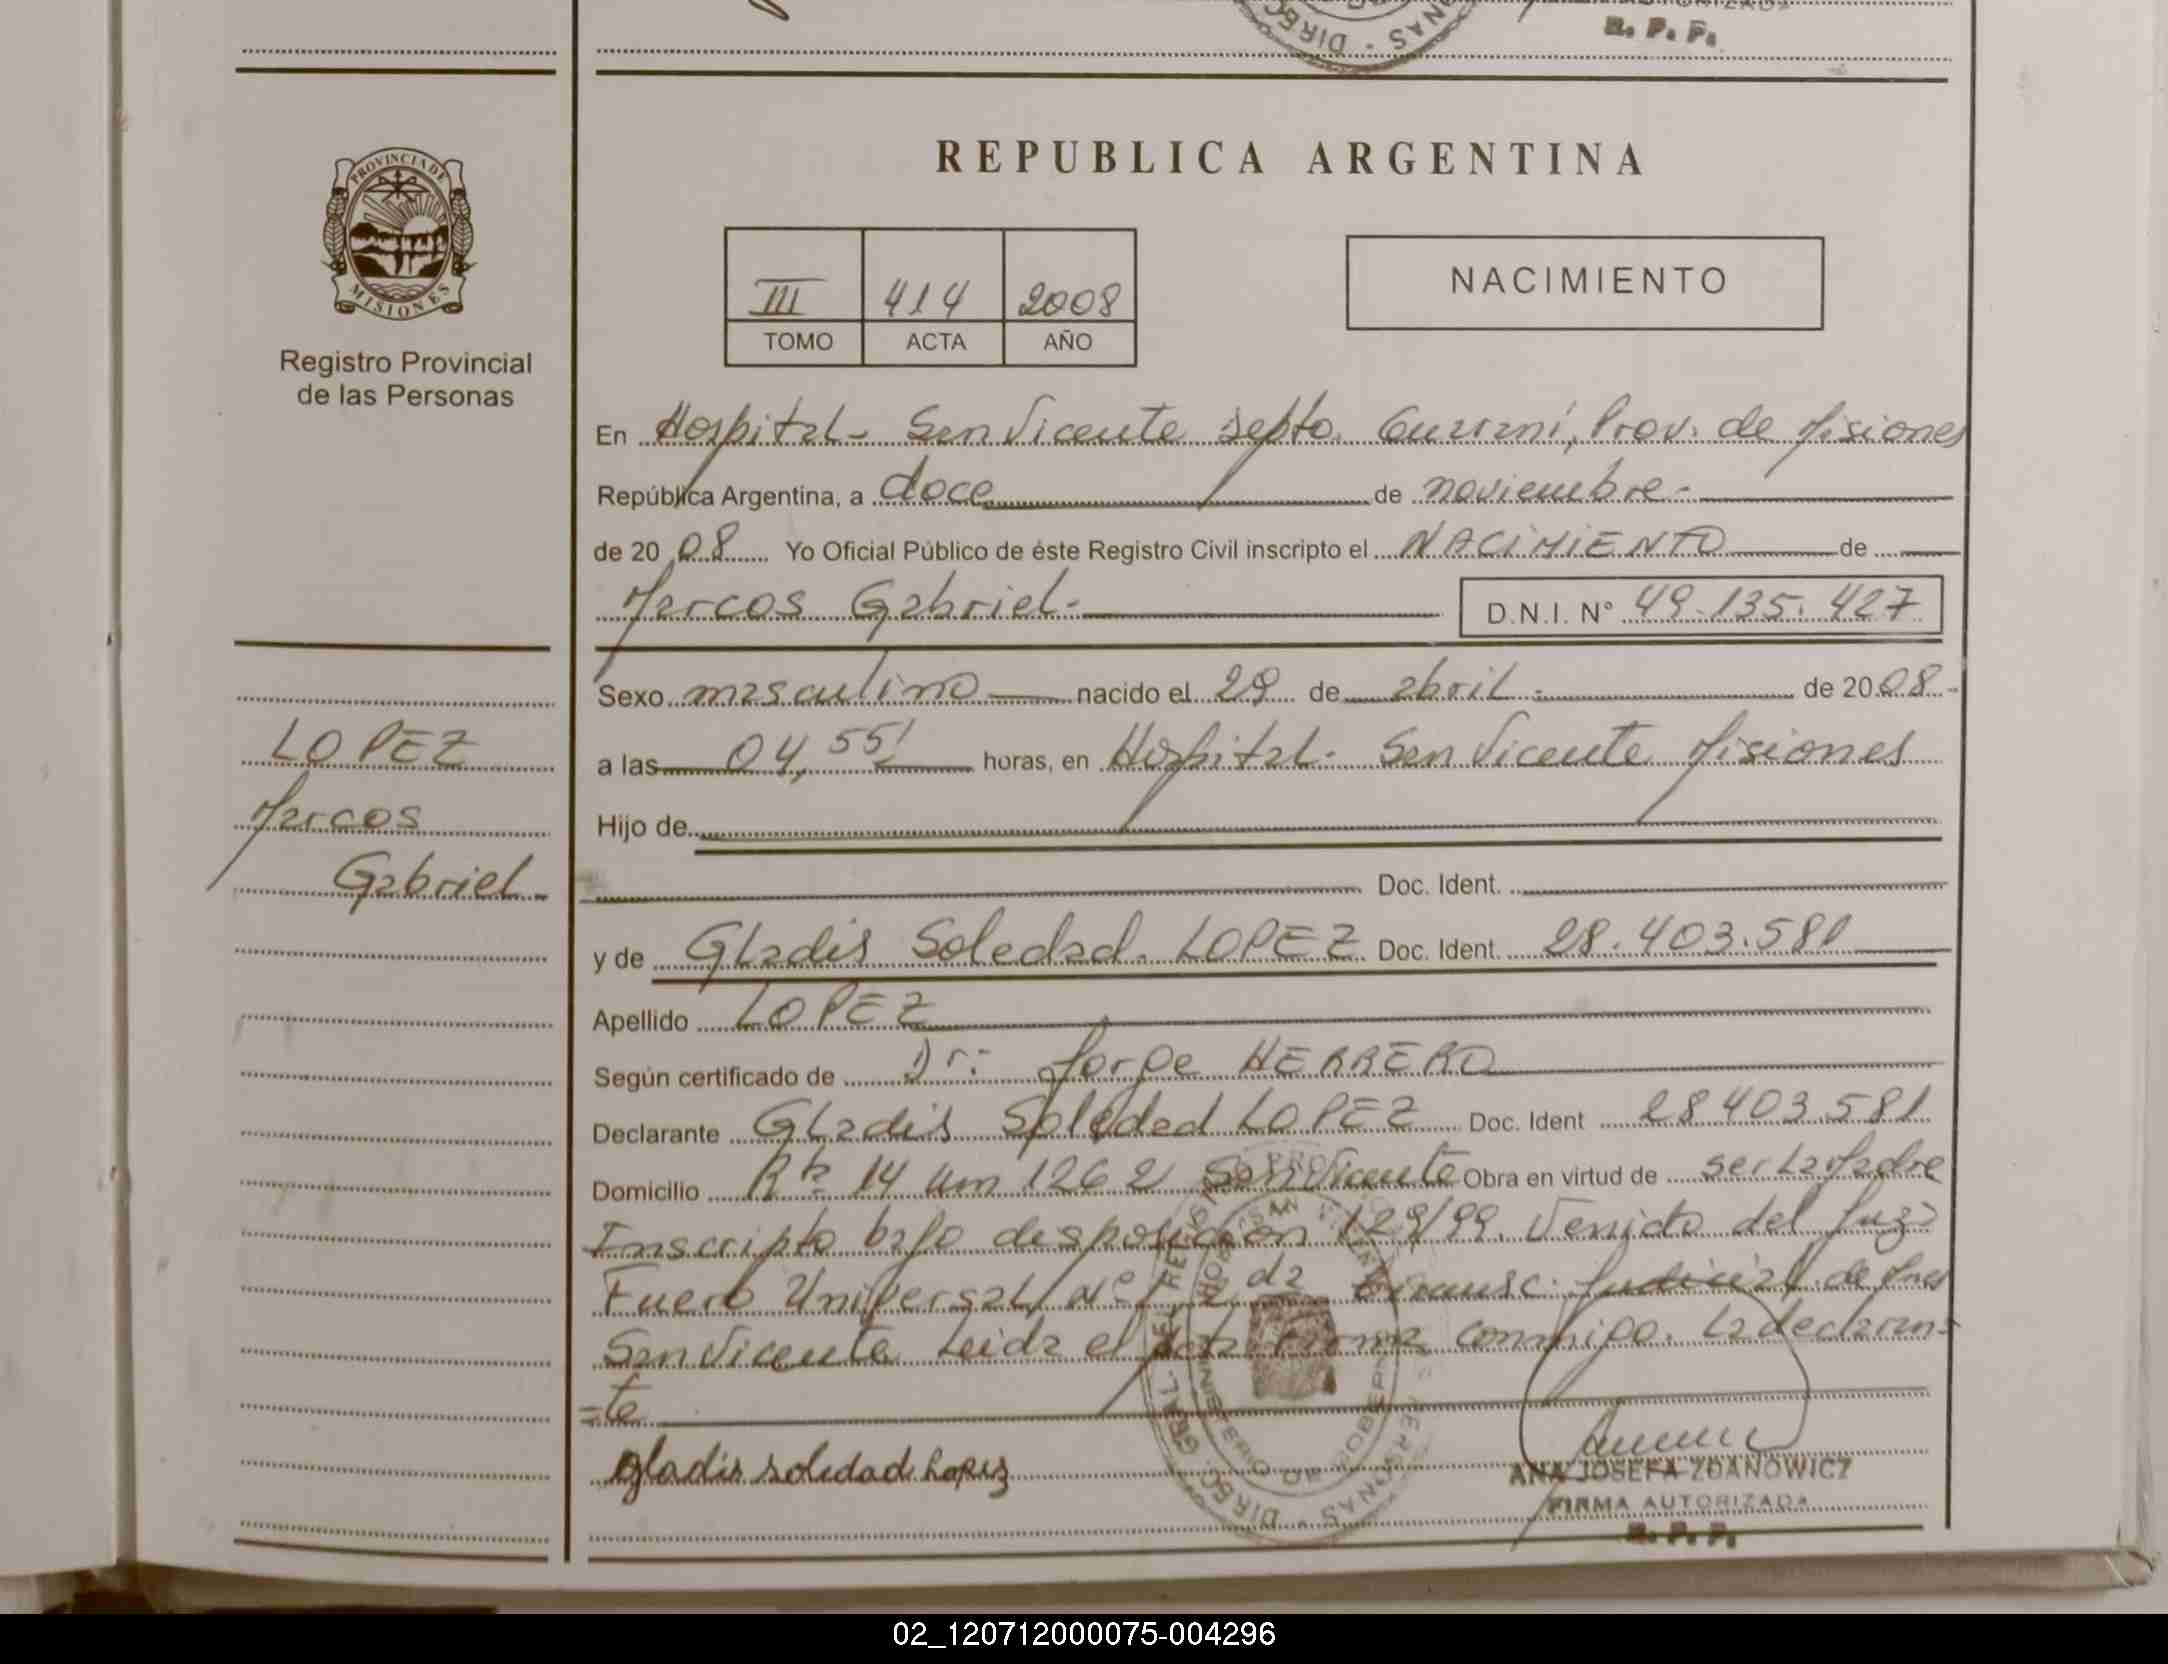 DIREC NAS
R. P. P.
PROVINCIA DE
MISIONES
Registro Provincial
de las Personas
REPUBLICA ARGENTINA
III 414 2008
TOMO ACTA AÑO
NACIMIENTO
En Hospital - San Vicente Depto. Guarani, Prov. de Misiones
República Argentina, a doce de noviembre -
de 20 08 Yo Oficial Público de éste Registro Civil inscripto el NACIMIENTO de
Marcos Gabriel - D.N.I. N° 49.135.427
Sexo masculino nacido el 29 de abril - de 20 08 -
a las 04,55' horas, en Hospital - San Vicente Misiones
Hijo de
Doc. Ident.
y de Gladis Soledad LOPEZ Doc. Ident. 28.403.581
Apellido LOPEZ
Según certificado de Dr: Jorge HERRERO
Declarante Gladis Soledad LOPEZ Doc. Ident 28403581
Domicilio Rta 14 Km 1262 San Vicente Obra en virtud de ser La Madre
Inscripto bajo disposicion 129/99. Venido del Juz
Fuero Universal N° 1 2da Circunsc. Judicial de Mnes
San Vicente Leida el acta firma conmigo. La declaran-
-te
gladis soledad Lopez
ANA JOSEFA ZDANOWICZ
FIRMA AUTORIZADA
R. P. P.
LOPEZ
Marcos
Gabriel -
02_120712000075-004296